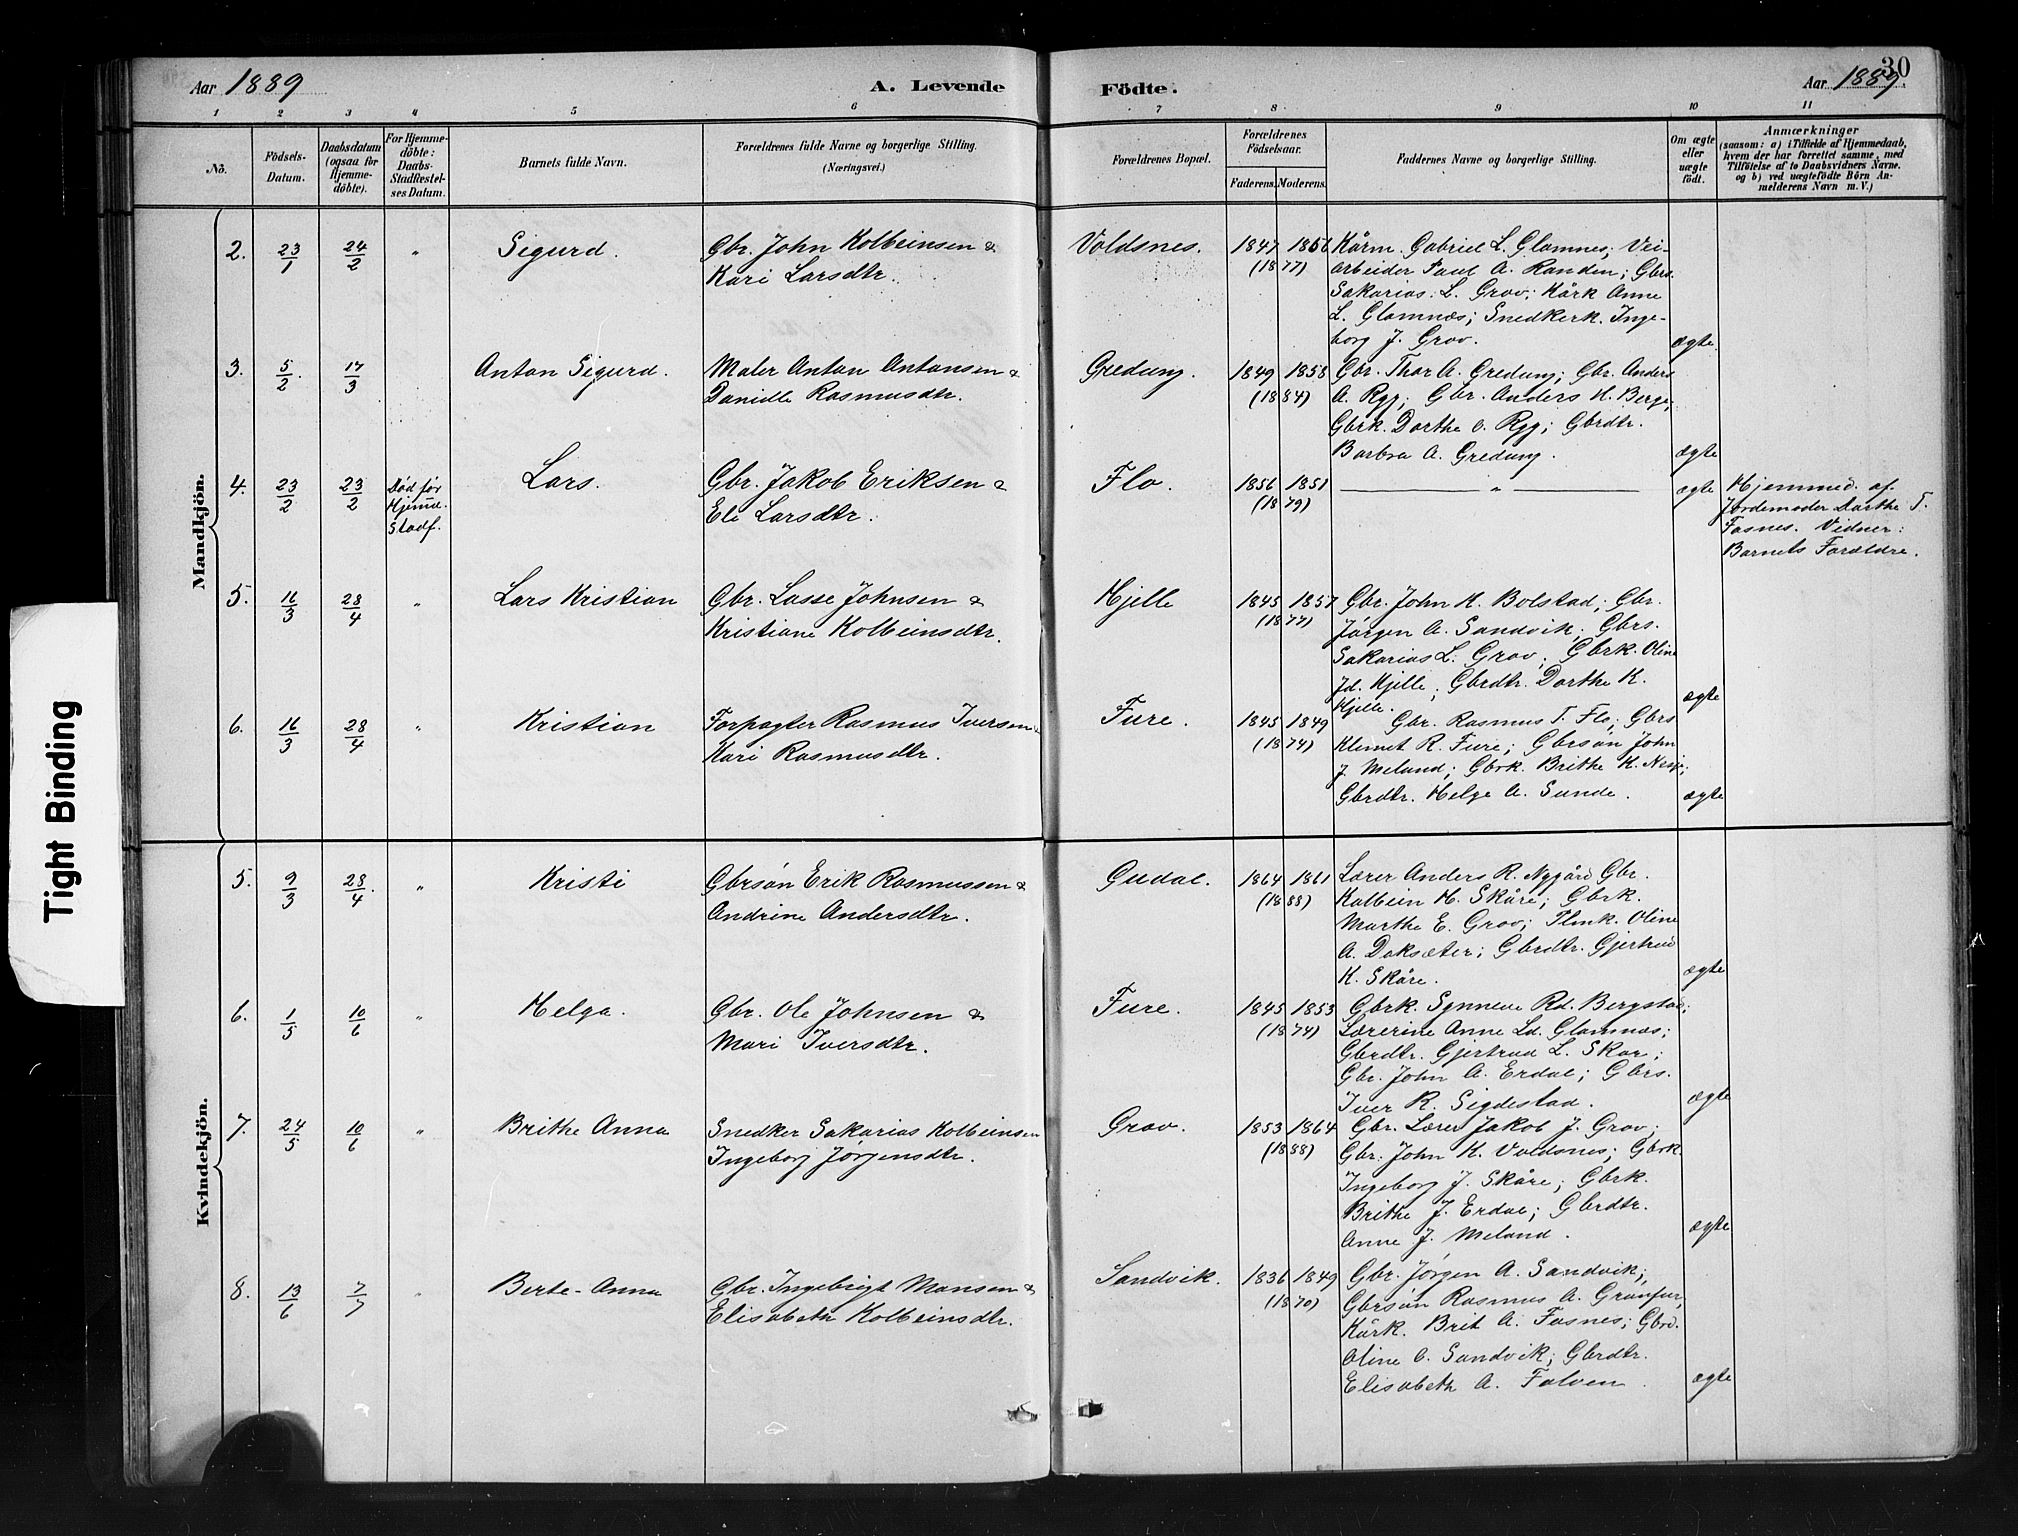 Aar 1889
A. Levende Födte.
Aar 1889.
30
1 2 3 4 5 6 7 8 9 10 11
No.
Födsels-Datum.
Daabsdatum (ogsaa for Hjemme-döbte).
For Hjemme-döbte: Daabs-Stadfæstelses Datum.
Barnets fulde Navn.
Forældrenes fulde Navne og borgerlige Stilling.
(Næringsvei.)
Forældrenes Bopæl.
Forældrenes Födselsaar.
Faderens. Moderens.
Faddernes Navne og borgerlige Stilling.
Om ægte eller uægte födt.
Anmærkninger
(saasom: a) i Tilfælde af Hjemmedaab,
hvem der har forrettet samme, med
Tilföielse af to Daabsvidners Navne.
og b) ved uægtefödte Börn An-
melderens Navn m. V.)
Mandkjön.
2. 23/1 24/2 " Sigurd.
Gbr. John Kolbeinsen &
Kari Larsdtr.
Voldsnes. 1847 1856
(1877)
Kårm. Gabriel L. Glomnes; Vei-
arbeider Paul A. Randen; Gbrs.
Sakarias L. Grov; Kårk Anne
L. Glomnæs; Snedkerk. Inge-
borg J. Grov.
ægte.
3. 5/2. 17/3 Anton Sigurd.
Maler Anton Antonsen &
Danielle Rasmusdtr.
Gredung. 1849 1858
(1884)
Gbr. Thor A. Gredung; Gbr. Anders
A. Ryg; Gbr. Anders K. Berge;
Gbrk. Dorthe O. Ryg; Gbrdtr.
Barbra A. Gredung.
ægte
4. 23/2 23/2 Død før
Hjemd.
Stadf.
Lars.
Gbr. Jakob Eriksen &
Eli Larsdtr.
Flo. 1856 1851
(1879)
"
ægte
Hjemmed. af
Jordemoder Dorthe T.
Fosnes. Vidner:
Barnets Forældre.
5. 16/3 28/4 " Lars Kristian
Gbr. Lasse Johnsen &
Kristiane Kolbeinsdtr.
Hjelle 1845 1857
(1877)
Gbr. John K. Bolstad; Gbr.
Jørgen A. Sandvik; Gbrs.
Sakarias L. Grov; Gbrk. Oline
Jd. Hjelle; Gbrdtr. Dorthe K.
Hjelle.
ægte
6. 16/3 28/4 " Kristian
Forpagter Rasmus Iversen &
Kari Rasmusdtr.
Fure. 1845 1849
(1874)
Gbr. Rasmus T. Flo; Gbrs
Klemet R. Fure; Gbrsøn John
J. Meland; Gbrk. Brithe K. Nesje;
Gbrdtr. Helge A. Sunde.
ægte
Kvindekjön.
5. 9/3 28/4. " Kristi
Gbrsøn Erik Rasmussen &
Andrine Andersdtr.
Gudal. 1864 1861
(1888)
Lærer Anders R. Nygård Gbr.
Kolbein H. Skåre; Gbrk.
Marthe E. Grov; Plmk. Oline
A. Doksæter; Gbrdtr. Gjertrud
K. Skåre.
ægte
6. 1/5 10/6 " Helga.
Gbr. Ole Johnsen &
Mari Iversdtr.
Fure. 1845 1853
(1874)
Gbrk. Synneve Rd. Bergstad;
Lærerine Anne Ld. Glomnæs;
Gbrdtr. Gjertrud L. Skar;
Gbr. John A. Erdal; Gbrs.
Iver R. Sigdestad.
ægte
7. 24/5 10/6 " Brithe Anna
Snedker Sakarias Kolbeinsen
Ingeborg Jørgensdtr.
Grov. 1853 1864
(1888)
Gbr. Lærer Jakob J. Grov;
Gbr. John K. Voldsnes; Gbrk.
Ingeborg J. Skåre; Gbrk.
Brithe J. Erdal; Gbrdtr.
Anne J. Meland.
ægte
8. 13/6 7/7 " Berte-Anna
Gbr. Ingebrigt Monsen &
Elisabeth Kolbeinsdtr.
Sandvik. 1836 1849
(1870)
Gbr. Jørgen A. Sandvik;
Gbrsøn Rasmus A. Gronfur,
Kårk. Brit A. Fosnes; Gbrd.
Oline O. Sandvik; Gbrdtr.
Elisabeth A. Folven.
ægte
Tight Binding